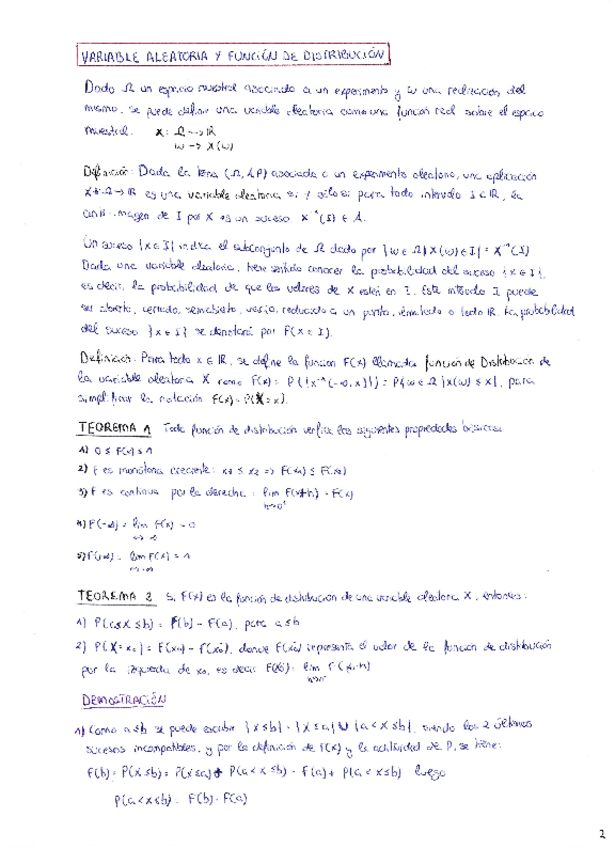 VARIABLE ALEATORIA Y FUNCIÓN DE DISTRIBUCIÓN
Dado Ω un espacio muestral asociado a un experimento y ω una realización del
mismo, se puede definir una variable aleatoria como una función real sobre el espacio
muestral. X: Ω → ℝ
ω → X(ω)
Definición: Dada la terna (Ω, A, P) asociada a un experimento aleatorio, una aplicación
X: Ω → ℝ es una variable aleatoria si y sólo si para todo intervalo I ⊂ ℝ, la
anti-imagen de I por X es un suceso X⁻¹(I) ∈ A.
Un suceso {X ∈ I} indica el subconjunto de Ω dado por {ω ∈ Ω | X(ω) ∈ I} = X⁻¹(I)
Dada una variable aleatoria, tiene sentido conocer la probabilidad del suceso {X ∈ I},
es decir, la probabilidad de que los valores de X estén en I. Este intervalo I puede
ser abierto, cerrado, semiabierto, vacío, reducido a un punto, limitado o todo ℝ. La probabilidad
del suceso {X ∈ I} se denotará por P(X ∈ I).
Definición: Para todo x ∈ ℝ, se define la función F(x) llamada función de Distribución de
la variable aleatoria X como F(x) = P({X⁻¹(-∞, x]}) = P{ω ∈ Ω | X(ω) ≤ x}, para
simplificar la notación F(x) = P(X ≤ x).
TEOREMA 1 Toda función de distribución verifica las siguientes propiedades básicas
1) 0 ≤ F(x) ≤ 1
2) F es monótona creciente: x₁ ≤ x₂ => F(x₁) ≤ F(x₂)
3) F es continua por la derecha: lim F(x+h) = F(x)
h→0⁺
4) F(-∞) = lim F(x) = 0
5) F(+∞) = lim F(x) = 1
TEOREMA 2 Si F(x) es la función de distribución de una variable aleatoria X, entonces:
1) P(a<X ≤ b) = F(b) - F(a), para a ≤ b
2) P(X = x₀) = F(x₀) - F(x₀⁻), donde F(x₀⁻) representa el valor de la función de distribución
por la izquierda de x₀, es decir F(x₀⁻) = lim F(x₀-h)
DEMOSTRACIÓN
1) Como a ≤ b se puede escribir {X ≤ b} = {X ≤ a} ∪ {a < X ≤ b}, siendo los 2 últimos
sucesos incompatibles, y por la definición de F(x) y la aditividad de P, se tiene:
F(b) = P(X ≤ b) = P(X ≤ a) + P(a < X ≤ b) = F(a) + P(a < X ≤ b) luego
P(a < X ≤ b) = F(b) - F(a)
2